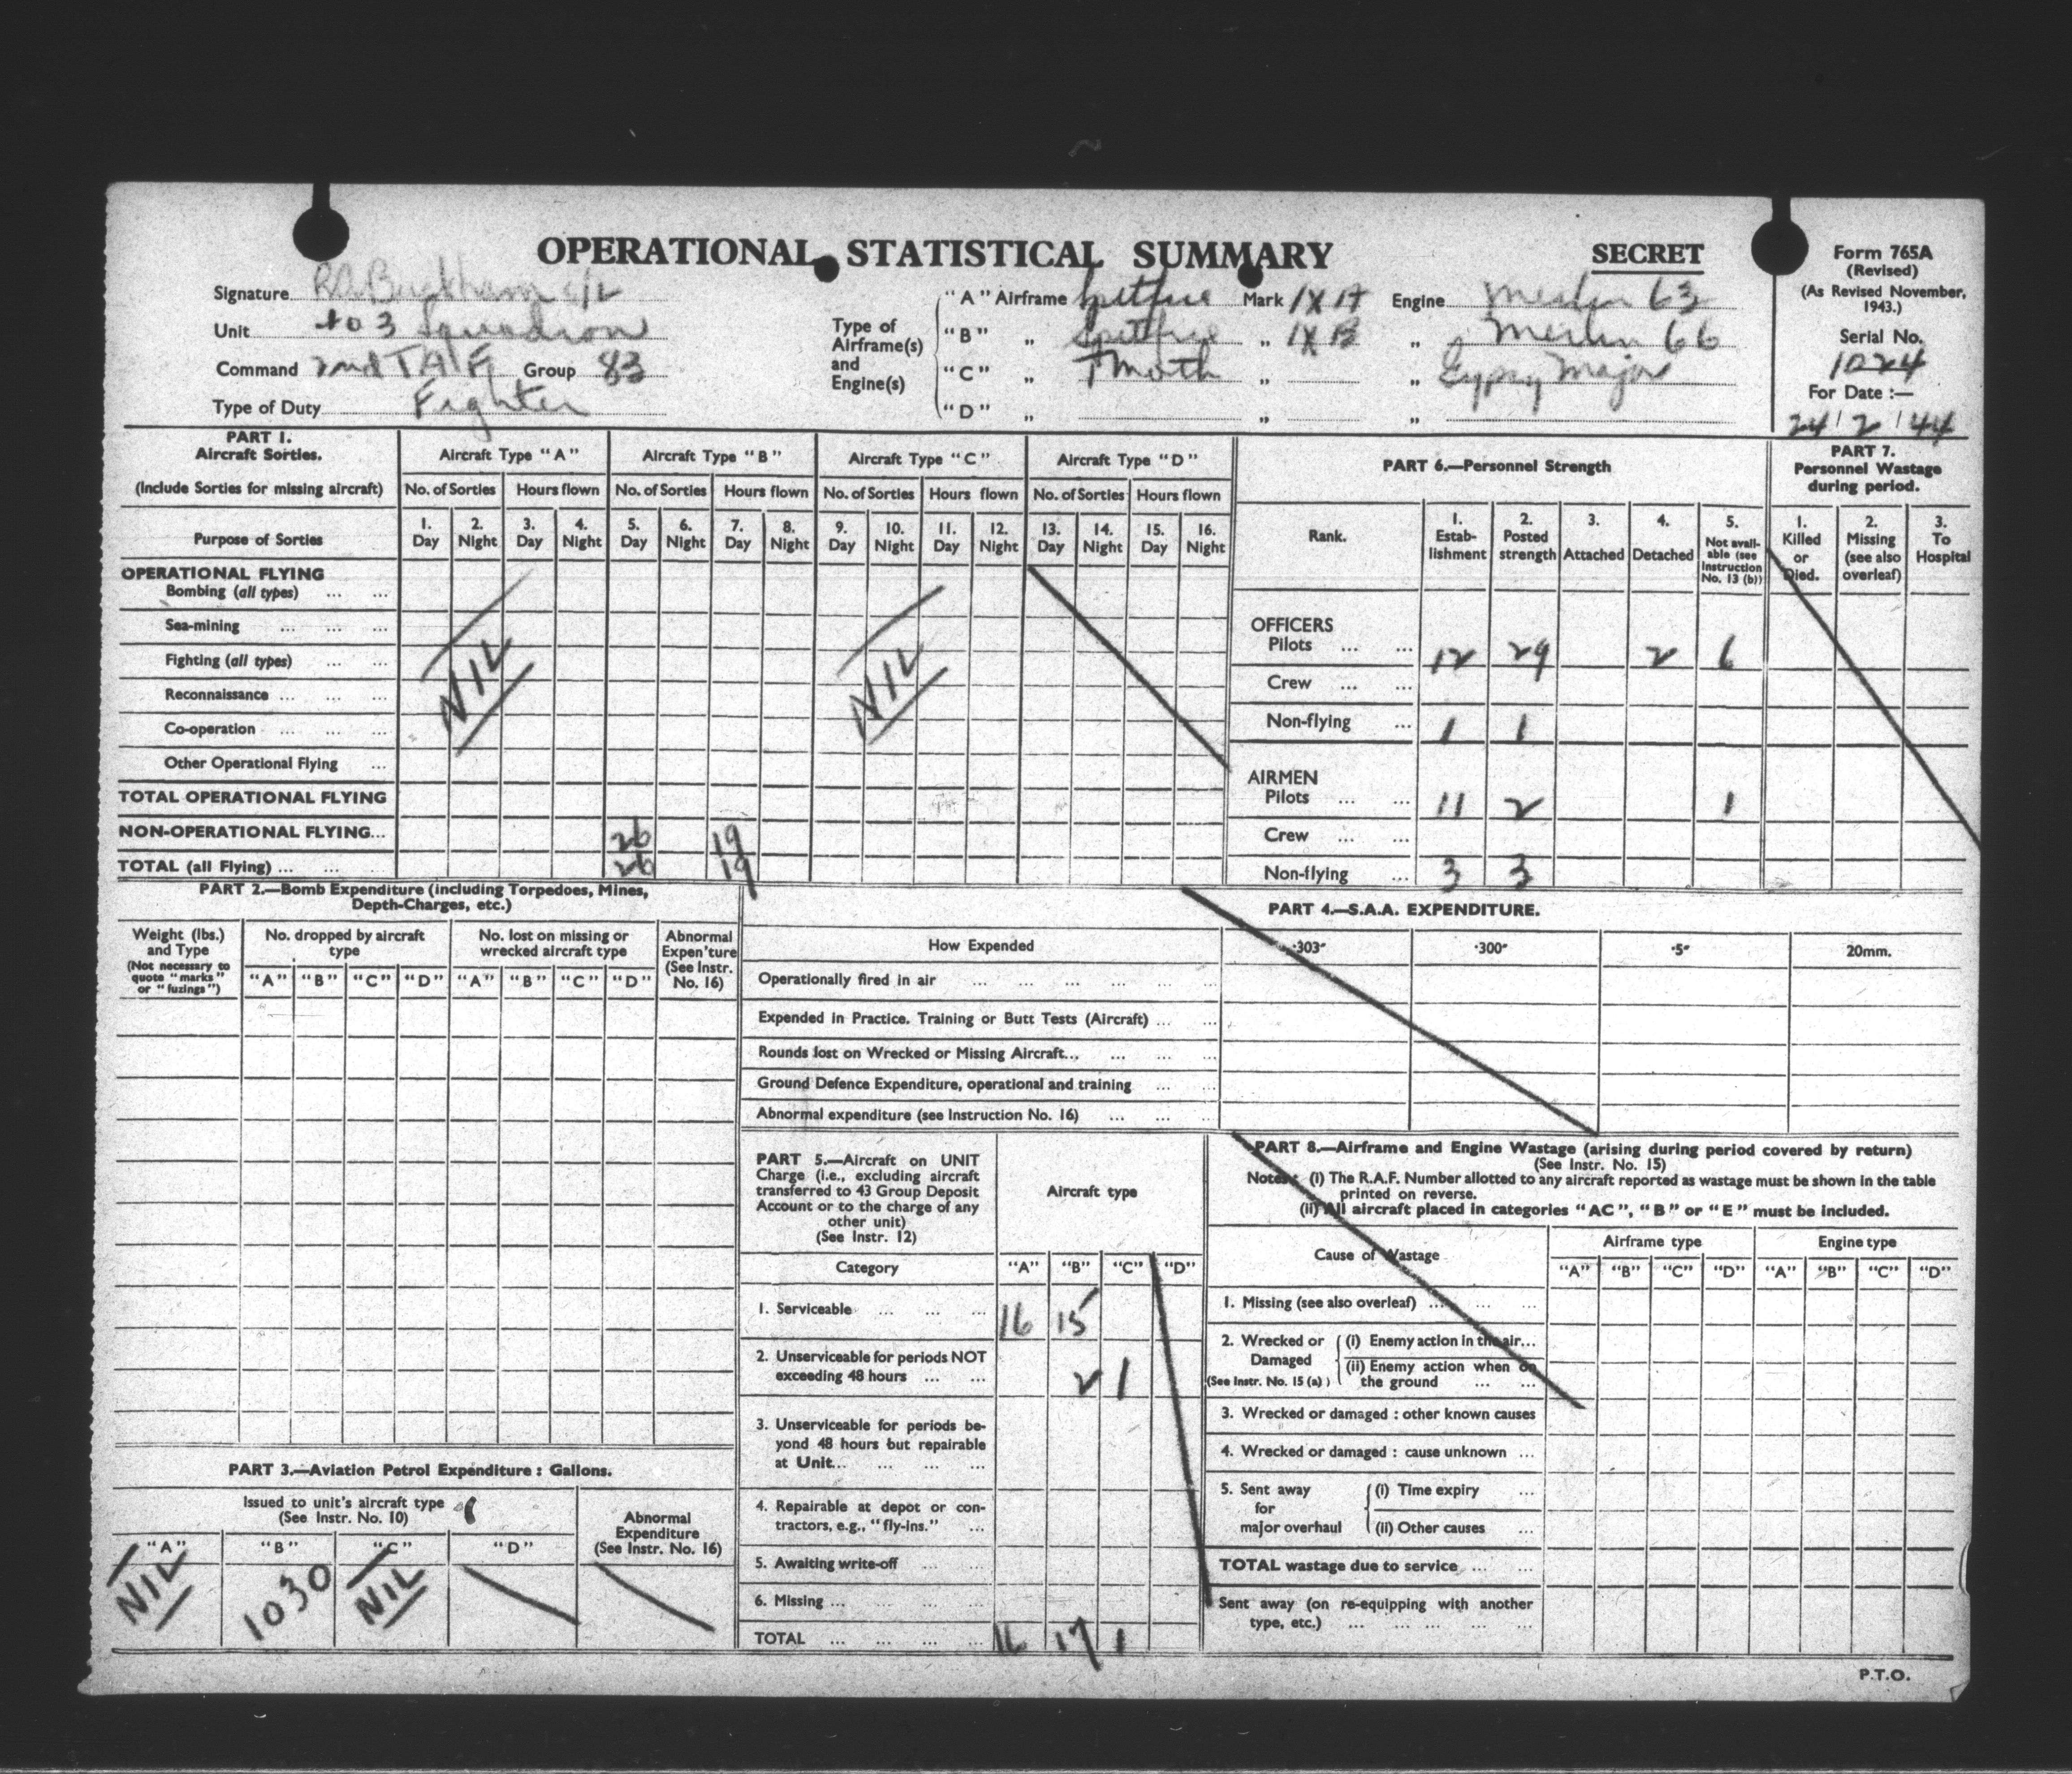 OPERATIONAL STATISTICAL SUMMARY
SECRET
Form 765A
(Revised)
(As Revised November,
1943.)
Serial No.
1024
For Date :—
24/2/44
Signature R.A. Buckham S/L
Unit 403 Squadron
Command 2nd T.A.F. Group 83
Type of Duty Fighter
Type of
Airframe(s)
and
Engine(s)
"A" Airframe Spitfire Mark IX A Engine Merlin 63
"B" „ Spitfire „ IX B „ Merlin 66
"C" „ T Moth „ „ Gypsy Major
"D" „ „ „
PART 1.
Aircraft Sorties.
(Include Sorties for missing aircraft)
Aircraft Type "A" Aircraft Type "B" Aircraft Type "C" Aircraft Type "D"
No. of Sorties Hours flown No. of Sorties Hours flown No. of Sorties Hours flown No. of Sorties Hours flown
Purpose of Sorties
1. Day 2. Night 3. Day 4. Night 5. Day 6. Night 7. Day 8. Night 9. Day 10. Night 11. Day 12. Night 13. Day 14. Night 15. Day 16. Night
OPERATIONAL FLYING
Bombing (all types) ... ...
Sea-mining ... ... ...
Fighting (all types) ... ...
Reconnaissance ... ... ...
Co-operation ... ... ...
Other Operational Flying ...
NIL NIL
TOTAL OPERATIONAL FLYING
NON-OPERATIONAL FLYING... 26 19
TOTAL (all Flying) ... ... 26 19
PART 6.—Personnel Strength
Rank.
1. Estab-lishment
2. Posted strength
3. Attached
4. Detached
5. Not avail-able (see Instruction No. 13 (b))
OFFICERS
Pilots ... ... 12 29 2 6
Crew ... ...
Non-flying ... 1 1
AIRMEN
Pilots ... ... 11 2 1
Crew ... ...
Non-flying ... 3 3
PART 7.
Personnel Wastage
during period.
1. Killed or Died.
2. Missing (see also overleaf)
3. To Hospital
PART 2.—Bomb Expenditure (including Torpedoes, Mines,
Depth-Charges, etc.)
Weight (lbs.)
and Type
(Not necessary to
quote "marks"
or "fuzings")
No. dropped by aircraft
type
No. lost on missing or
wrecked aircraft type
Abnormal
Expen'ture
(See Instr.
No. 16)
"A" "B" "C" "D" "A" "B" "C" "D"
PART 4.—S.A.A. EXPENDITURE.
How Expended ·303" ·300" ·5" 20mm.
Operationally fired in air ... ... ... ... ... ...
Expended in Practice. Training or Butt Tests (Aircraft) ... ...
Rounds lost on Wrecked or Missing Aircraft... ... ... ...
Ground Defence Expenditure, operational and training ... ...
Abnormal expenditure (see Instruction No. 16) ... ... ...
PART 5.—Aircraft on UNIT
Charge (i.e., excluding aircraft
transferred to 43 Group Deposit
Account or to the charge of any
other unit)
(See Instr. 12)
Aircraft type
Category "A" "B" "C" "D"
1. Serviceable ... ... ... 16 15
2. Unserviceable for periods NOT
exceeding 48 hours ... ... 2 1
3. Unserviceable for periods be-
yond 48 hours but repairable
at Unit... ... ... ...
4. Repairable at depot or con-
tractors, e.g., "fly-ins." ...
5. Awaiting write-off ... ...
6. Missing ... ... ... ...
TOTAL ... ... ... ... 16 17 1
PART 8.—Airframe and Engine Wastage (arising during period covered by return)
(See Instr. No. 15)
Notes: (i) The R.A.F. Number allotted to any aircraft reported as wastage must be shown in the table
printed on reverse.
(ii) All aircraft placed in categories "AC", "B" or "E" must be included.
Cause of Wastage
Airframe type Engine type
"A" "B" "C" "D" "A" "B" "C" "D"
1. Missing (see also overleaf) ... ... ...
2. Wrecked or
Damaged
(See Instr. No. 15 (a))
(i) Enemy action in the air...
(ii) Enemy action when on
the ground ... ...
3. Wrecked or damaged : other known causes
4. Wrecked or damaged : cause unknown ...
5. Sent away
for
major overhaul
(i) Time expiry ...
(ii) Other causes ...
TOTAL wastage due to service ... ...
Sent away (on re-equipping with another
type, etc.) ... ... ... ... ...
PART 3.—Aviation Petrol Expenditure : Gallons.
Issued to unit's aircraft type
(See Instr. No. 10)
Abnormal
Expenditure
(See Instr. No. 16)
"A" "B" "C" "D"
NIL 1030 NIL
P.T.O.